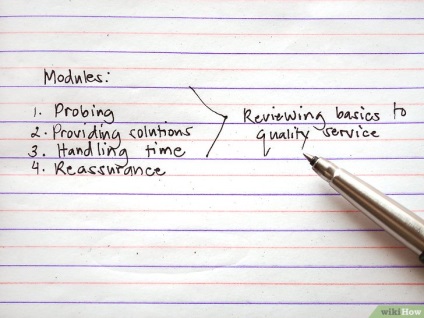 Modules:
1. Probing
2. Providing solutions
3. Handling time
4. Reassurance
Reviewing basics to
quality service
wikiHow